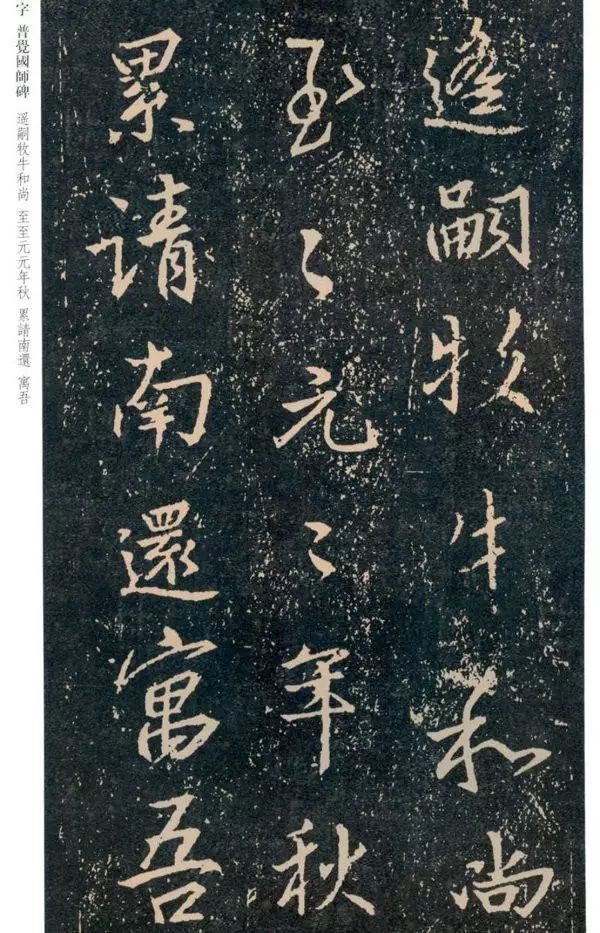 遙嗣牧牛和尚
至〻元〻年秋
累請南還寓吾
字 普覺國師碑 遥嗣牧牛和尚 至至元元年秋 累請南還 寓吾